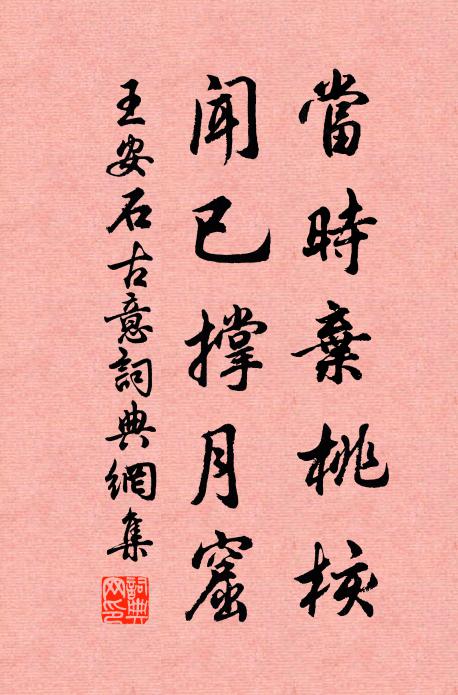 當時棄桃核
聞已撐月窟
王安石古意詞典網集
詞典網印